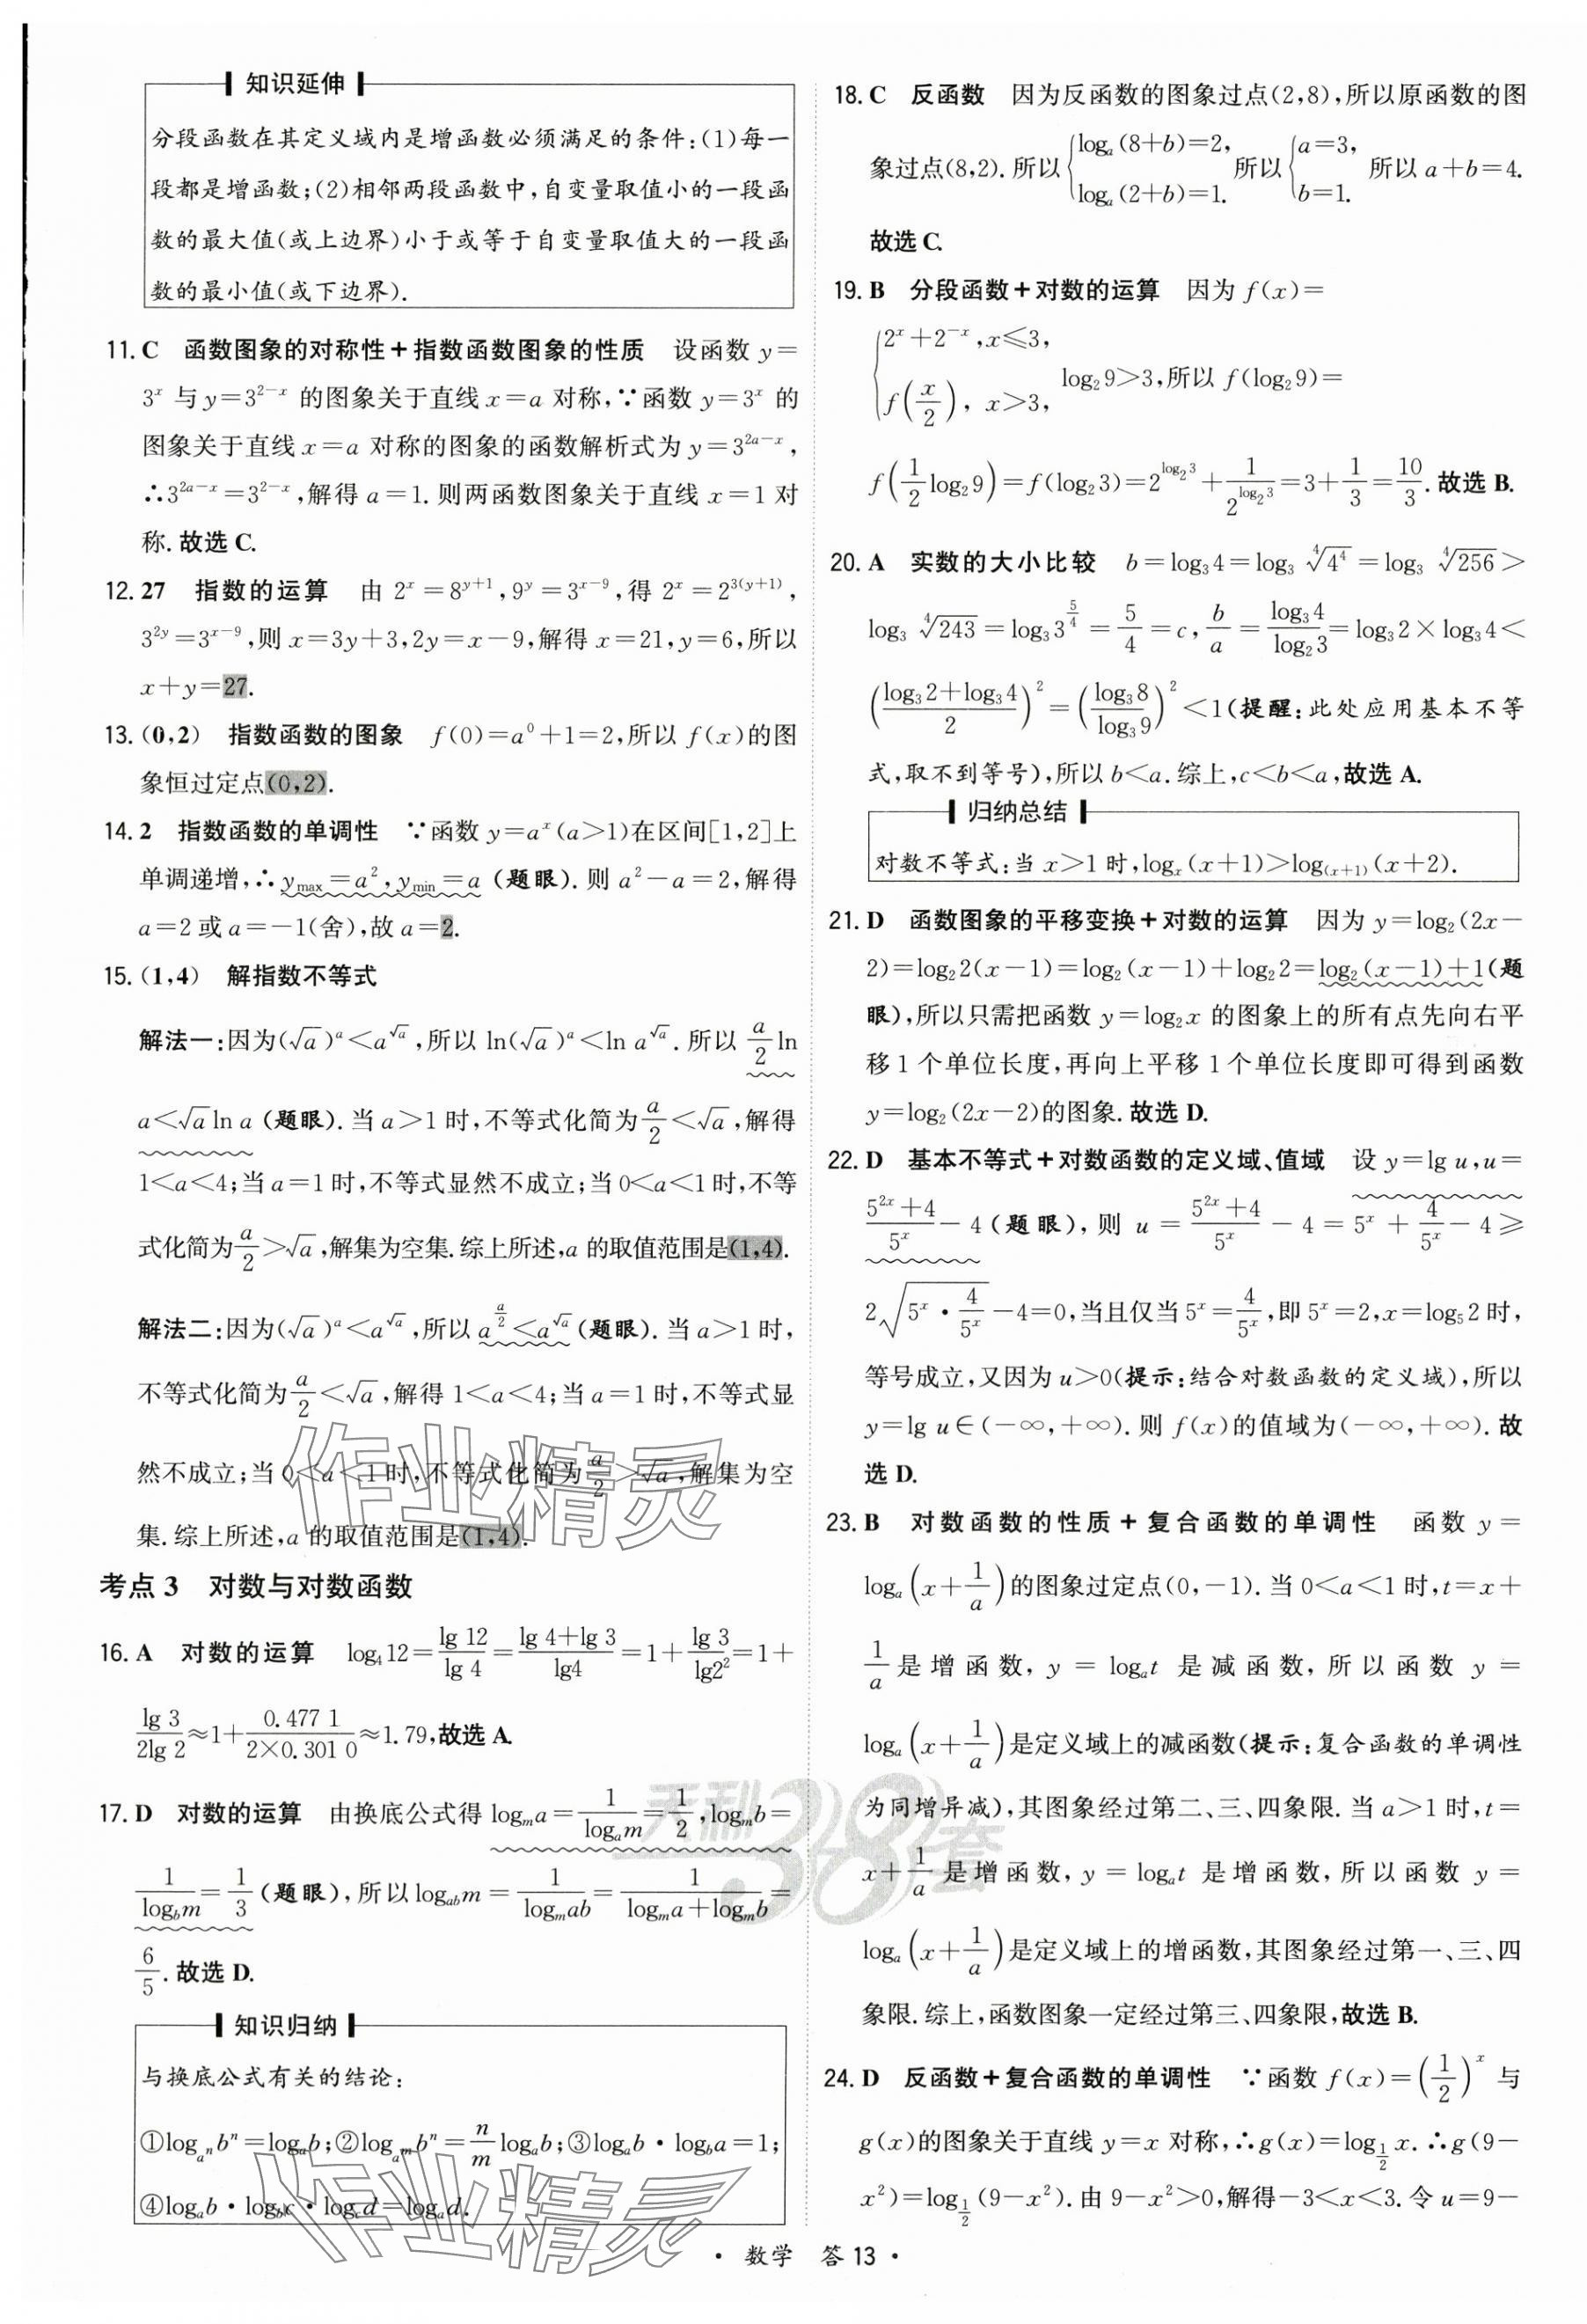 知识延伸
分段函数在其定义域内是增函数必须满足的条件:(1)每一
段都是增函数;(2)相邻两段函数中,自变量取值小的一段函
数的最大值(或上边界)小于或等于自变量取值大的一段函
数的最小值(或下边界).
11. C 函数图象的对称性+指数函数图象的性质 设函数 y=
3^x 与 y=3^{2-x} 的图象关于直线 x=a 对称,∵函数 y=3^x 的
图象关于直线 x=a 对称的图象的函数解析式为 y=3^{2a-x},
∴3^{2a-x}=3^{2-x},解得 a=1. 则两函数图象关于直线 x=1 对
称. 故选 C.
12. 27 指数的运算 由 2^x=8^{y+1},9^y=3^{x-9},得 2^x=2^{3(y+1)},
3^{2y}=3^{x-9},则 x=3y+3,2y=x-9,解得 x=21,y=6,所以
x+y=27.
13. (0,2) 指数函数的图象 f(0)=a^0+1=2,所以 f(x)的图
象恒过定点(0,2).
14. 2 指数函数的单调性 ∵函数 y=a^x(a>1)在区间[1,2]上
单调递增,∴y_{max}=a^2,y_{min}=a(题眼). 则 a^2-a=2,解得
a=2 或 a=-1(舍),故 a=2.
15. (1,4) 解指数不等式
解法一:因为(√a)^a<a^{√a},所以 ln(√a)^a<ln a^{√a}. 所以 a/2 ln
a<√a ln a(题眼). 当 a>1 时,不等式化简为 a/2<√a,解得
1<a<4;当 a=1 时,不等式显然不成立;当 0<a<1 时,不等
式化简为 a/2>√a,解集为空集. 综上所述,a 的取值范围是(1,4).
解法二:因为(√a)^a<a^{√a},所以 a^{a/2}<a^{√a}(题眼). 当 a>1 时,
不等式化简为 a/2<√a,解得 1<a<4;当 a=1 时,不等式显
然不成立;当 0<a<1 时,不等式化简为 a/2>√a,解集为空
集. 综上所述,a 的取值范围是(1,4).
作业精灵
考点 3 对数与对数函数
16. A 对数的运算 log_4 12=lg 12/lg 4=(lg 4+lg 3)/lg4=1+lg 3/lg2^2=1+
lg 3/2lg 2≈1+0.477 1/(2×0.301 0)≈1.79,故选 A.
17. D 对数的运算 由换底公式得 log_m a=1/log_a m=1/2,log_m b=
1/log_b m=1/3(题眼),所以 log_{ab} m=1/log_m ab=1/(log_m a+log_m b)=
6/5. 故选 D.
天利38套
知识归纳
与换底公式有关的结论:
①log_{a^n} b^n=log_a b;②log_{a^m} b^n=n/m log_a b;③log_a b·log_b a=1;
④log_a b·log_b c·log_c d=log_a d.
作业精灵
18. C 反函数 因为反函数的图象过点(2,8),所以原函数的图
象过点(8,2). 所以{log_a(8+b)=2, log_a(2+b)=1. 所以{a=3, b=1. 所以 a+b=4.
故选 C.
19. B 分段函数+对数的运算 因为 f(x)=
{2^x+2^{-x},x≤3, f(x/2),x>3, log_2 9>3,所以 f(log_2 9)=
f(1/2 log_2 9)=f(log_2 3)=2^{log_2 3}+1/2^{log_2 3}=3+1/3=10/3. 故选 B.
20. A 实数的大小比较 b=log_3 4=log_3 ∜(4^4)=log_3 ∜256>
log_3 ∜243=log_3 3^{5/4}=5/4=c,b/a=log_3 4/log_2 3=log_3 2×log_3 4<
((log_3 2+log_3 4)/2)^2=(log_3 8/log_3 9)^2<1(提醒:此处应用基本不等
式,取不到等号),所以 b<a. 综上,c<b<a,故选 A.
归纳总结
对数不等式:当 x>1 时,log_x(x+1)>log_{(x+1)}(x+2).
21. D 函数图象的平移变换+对数的运算 因为 y=log_2(2x-
2)=log_2 2(x-1)=log_2(x-1)+log_2 2=log_2(x-1)+1(题
眼),所以只需把函数 y=log_2 x 的图象上的所有点先向右平
移 1 个单位长度,再向上平移 1 个单位长度即可得到函数
y=log_2(2x-2)的图象. 故选 D.
22. D 基本不等式+对数函数的定义域、值域 设 y=lg u,u=
(5^{2x}+4)/5^x-4(题眼),则 u=(5^{2x}+4)/5^x-4=5^x+4/5^x-4≥
2√(5^x·4/5^x)-4=0,当且仅当 5^x=4/5^x,即 5^x=2,x=log_5 2 时,
等号成立,又因为 u>0(提示:结合对数函数的定义域),所以
y=lg u∈(-∞,+∞). 则 f(x)的值域为(-∞,+∞). 故
选 D.
23. B 对数函数的性质+复合函数的单调性 函数 y=
log_a(x+1/a)的图象过定点(0,-1). 当 0<a<1 时,t=x+
1/a 是增函数,y=log_a t 是减函数,所以函数 y=
log_a(x+1/a)是定义域上的减函数(提示:复合函数的单调性
为同增异减),其图象经过第二、三、四象限. 当 a>1 时,t=
x+1/a 是增函数,y=log_a t 是增函数,所以函数 y=
log_a(x+1/a)是定义域上的增函数,其图象经过第一、三、四
象限. 综上,函数图象一定经过第三、四象限,故选 B.
24. D 反函数+复合函数的单调性 ∵函数 f(x)=(1/2)^x 与
g(x)的图象关于直线 y=x 对称,∴g(x)=log_{1/2} x. ∴g(9-
x^2)=log_{1/2}(9-x^2). 由 9-x^2>0,解得-3<x<3. 令 u=9-
· 数学 答 13 ·